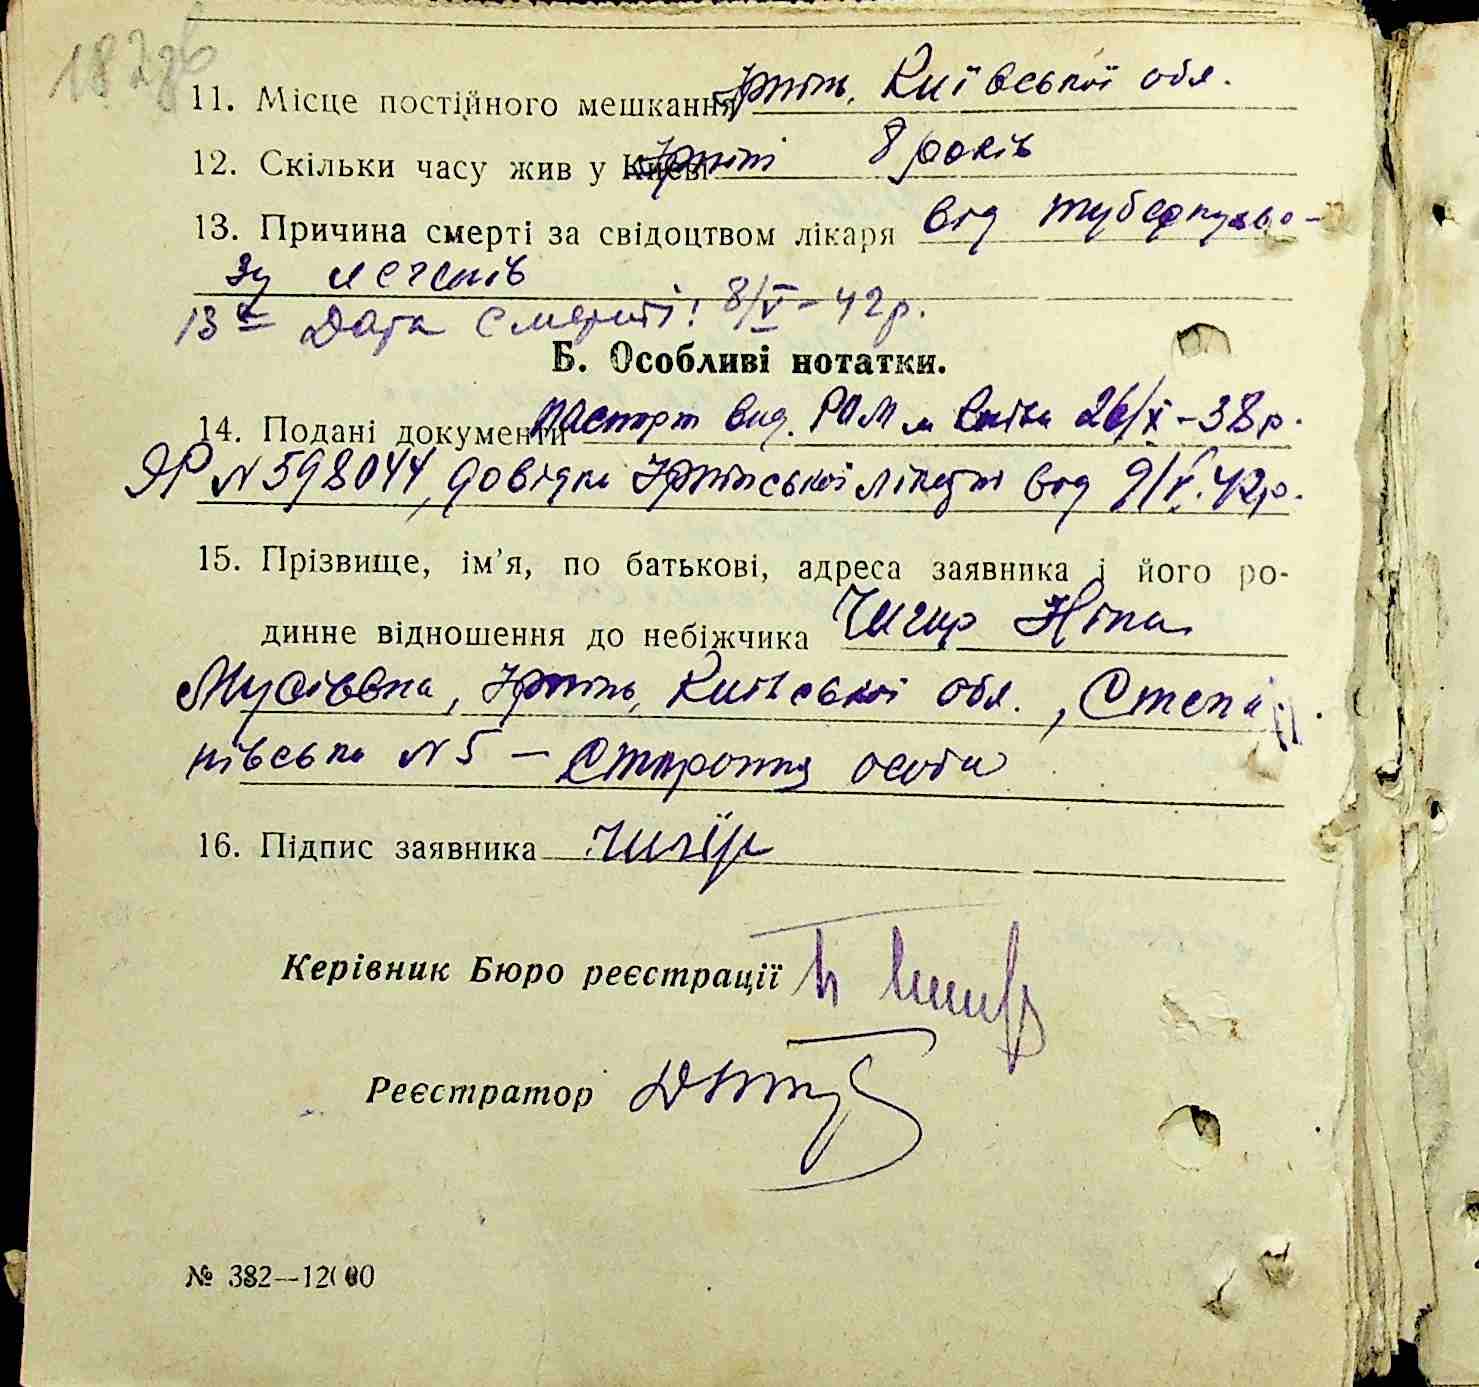 187зв
11. Місце постійного мешкання Ірпінь, Київської обл.
12. Скільки часу жив у Києві Ірпіні 8 років
13. Причина смерті за свідоцтвом лікаря від туберкульо-
зу легенів
13а Дата смерті: 8/V-42 р.
Б. Особливі нотатки.
14. Подані документи паспорт вид. РОМ м 26/X-38 р.
ЯР N 598044, довідка Ірпінської лікарні від 9/V.42р.
15. Прізвище, ім'я, по батькові, адреса заявника і його ро-
динне відношення до небіжчика Чигир Ніна
Мусіївна, Ірпінь, Київської обл., Степа-
нівська N 5 - Стороння особа
16. Підпис заявника Чигир
Керівник Бюро реєстрації
Реєстратор
№ 382—12000